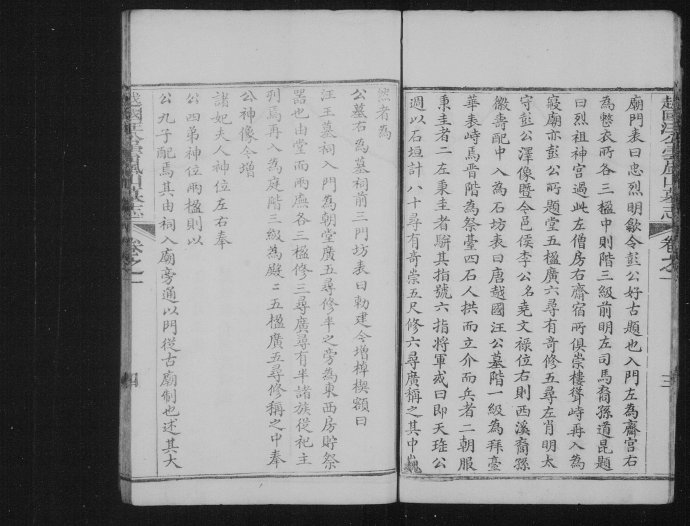 廟門表曰忠烈明歙令彭公好古題也入門左為齋宮右
為憋衣所各三楹中則階三級前明左司馬裔孫道昆題
曰烈祖神宮過此左僧房右齋宿所俱崇樓聳峙再入為
寢廟亦彭公所題堂五楹廣六尋有奇修五尋左肖明太
守彭公澤像暨令邑侯李公名堯文祿位右則西溪裔孫
徽壽配中入為石坊表曰唐越國汪公墓階一級為拜臺
華表峙焉晋階為祭臺四石人拱而立介而兵者二朝服
秉圭者二左秉圭者駢其指號六指將軍或曰即天㻇公
週以石垣計八十尋有奇崇五尺修六尋廣稱之其中巍
然者為
公墓右為墓祠前三門坊表曰勅建今增棹楔額曰
汪王墓祠入門為朝堂廣五尋修半之旁為東西房貯祭
器也由堂而兩廡各三楹修三尋廣尋有半諸族從祀主
列焉再入為庭階三級為殿二五楹廣五尋修稱之中奉
公神像今增
諸妃夫人神位左右奉
公四弟神位兩楹則以
公九子配焉其由祠入廟旁通以門從古廟制也述其大
越國汪公雲嵐山墓志 卷之一 三
越國汪公雲嵐山墓志 卷之一 四